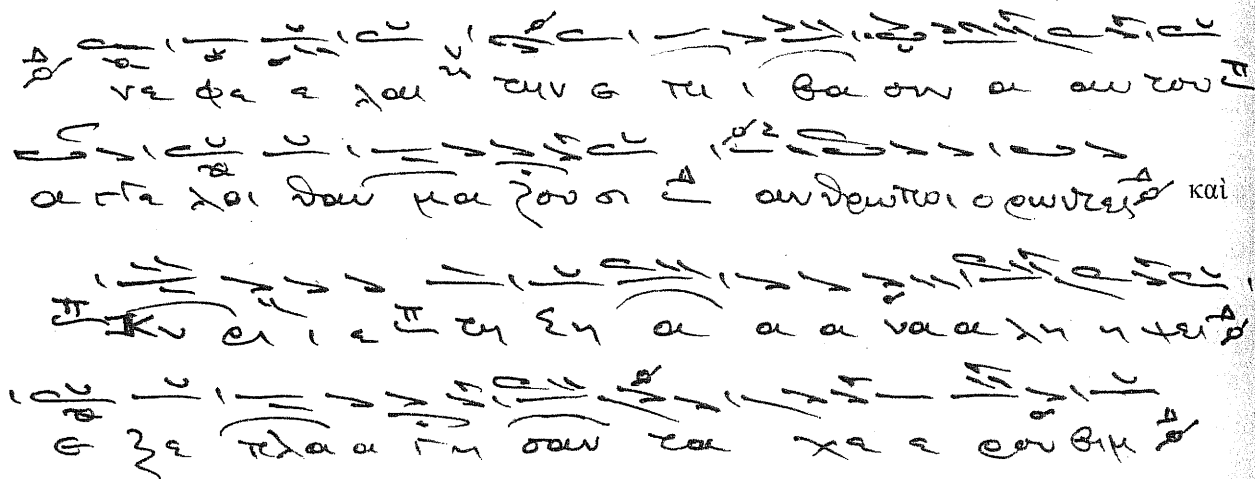 νε φε ε λαι την ε πι ι βα σιν α αυ του
α γγε λοι θαυ μα ζου σι αν θρωποι ορωντες καὶ
Κυ ρι ι ε τη ξη α α α να α λη η ψει
ε ξε πλα α γη σαν τα χε ε ρου βιμ